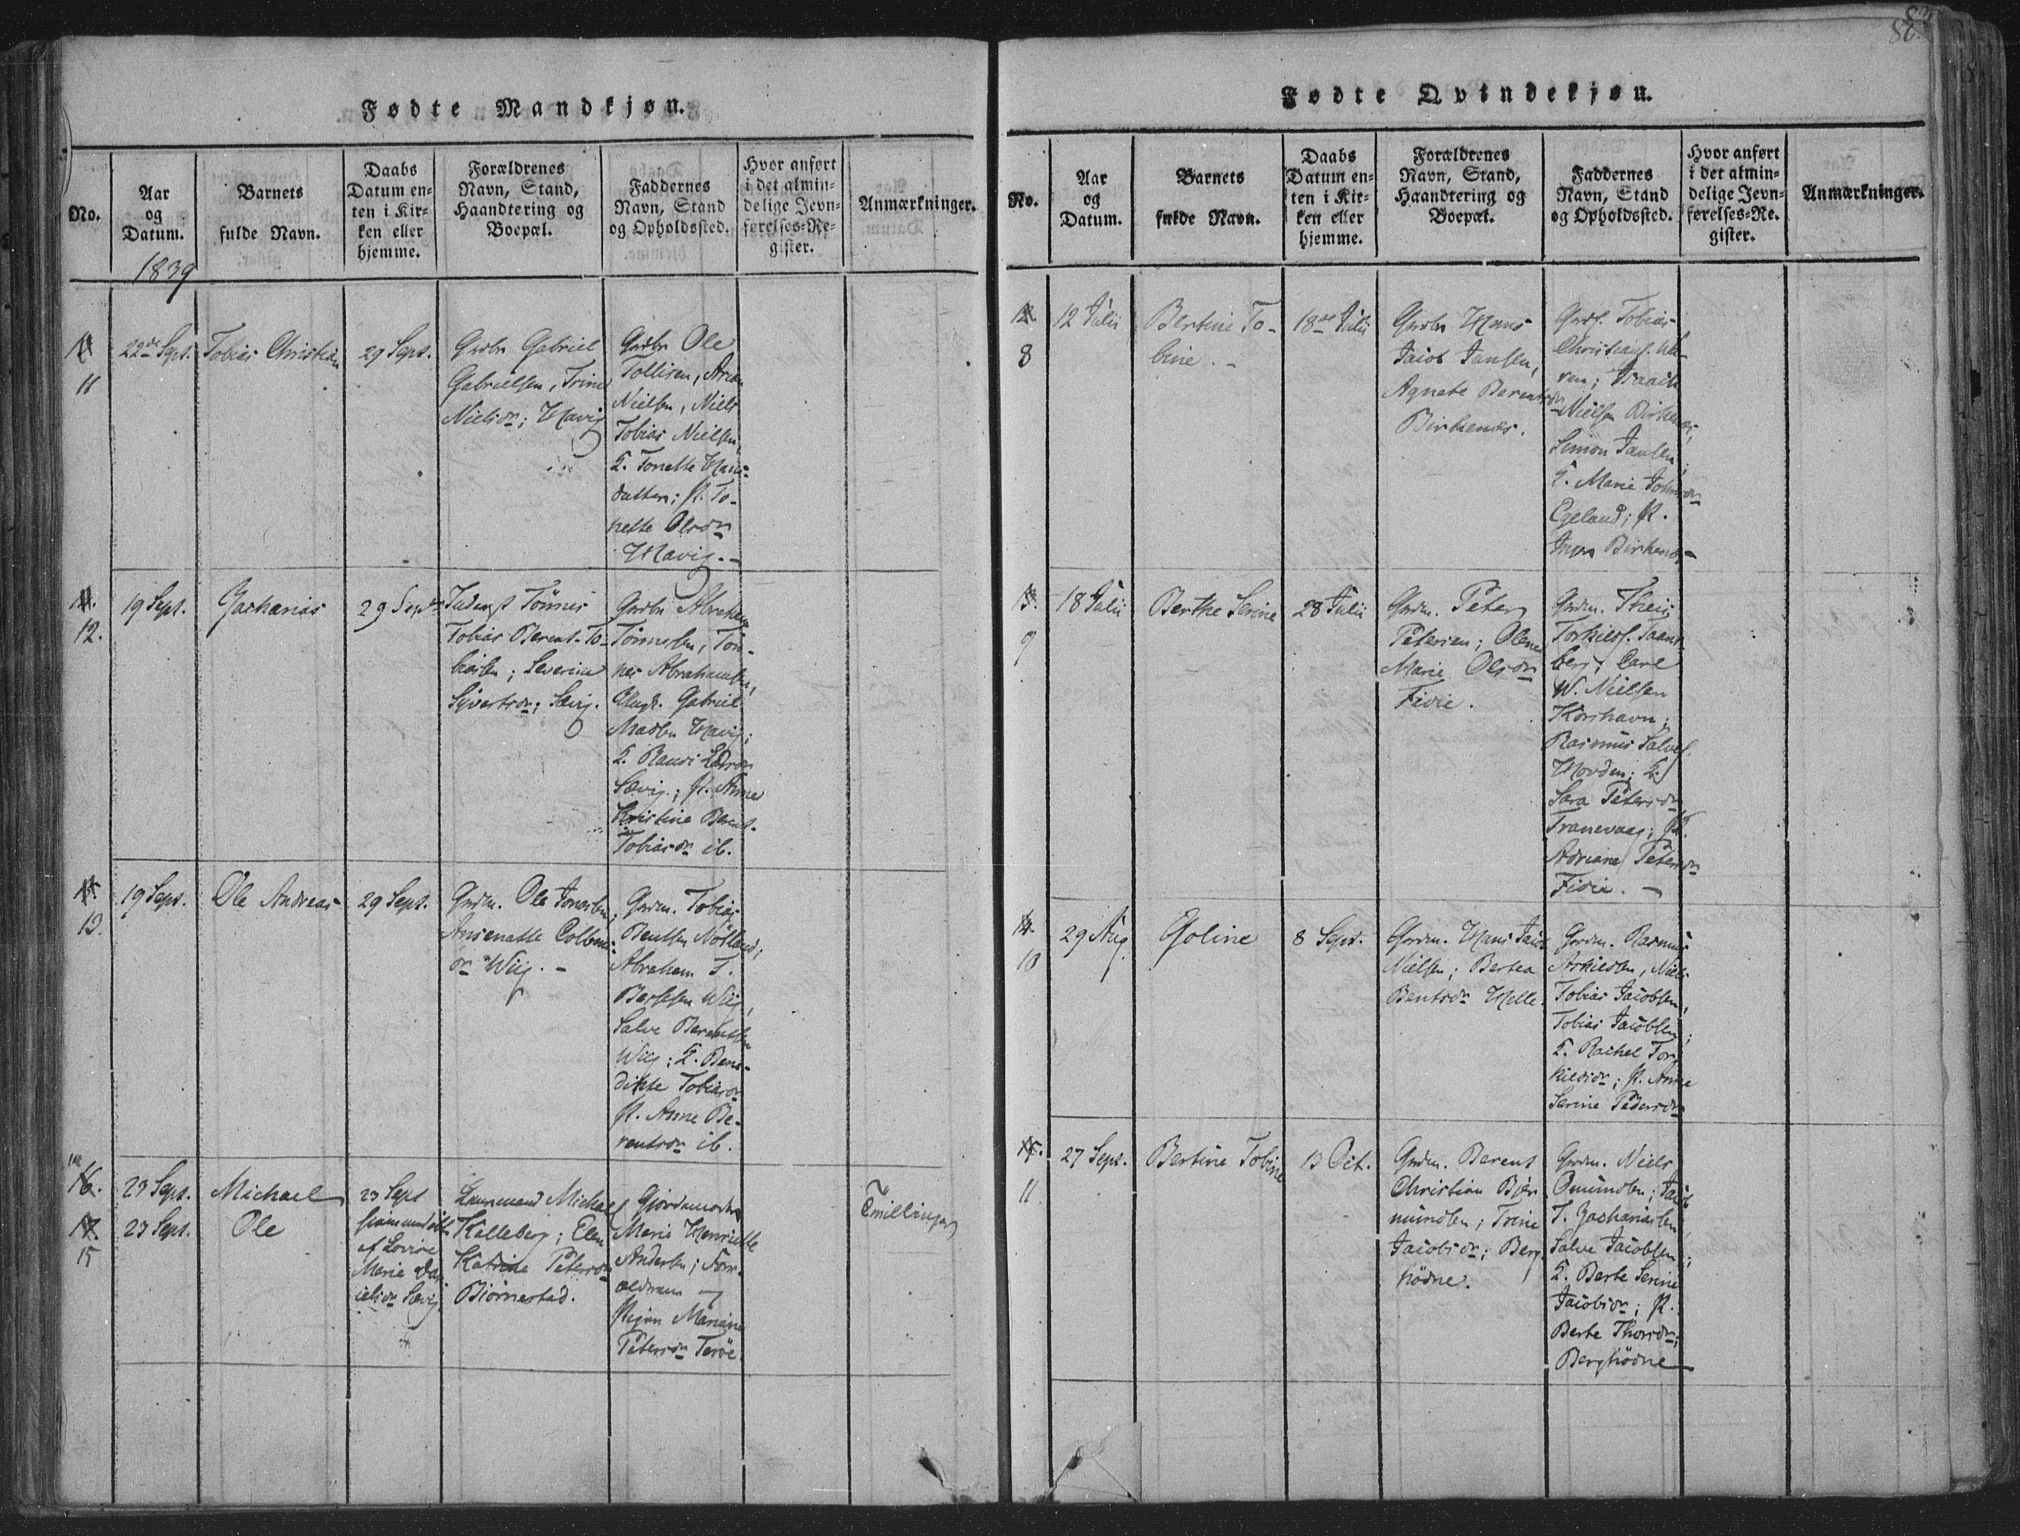 82
Fødte Mandkjøn.
No.
Aar
og
Datum.
Barnets
fulde Navn.
Daabs
Datum en-
ten i Kir-
ken eller
hjemme.
Forældrenes
Navn, Stand,
Haandtering og
Boepæl.
Faddernes
Navn, Stand
og Opholdssted.
Hvor anført
i det almin-
delige Jevn-
førelses-Re-
gister.
Anmærkninger.
1839
11
22de Sept.
Tobias Christian
29 Sept.
Grdbr Gabriel
Gabrielsen, Trine
Nielsdr; Havig
Grdbr Ole
Tollisen,
Nielsen, Niels
Tobias Nielsen,
K. Tonette Hans-
datter; P. To-
nette Olsdr
Havig. -
14.
12.
19 Sept.
Zacharias
29 Sept
Tønnes
Tobias Berent To-
biasen; Severine
Syvertsdr; Sævig.
Grdbr Abraham
Tønnesen, Tøn-
nes Abrahamsen,
Gabriel
Madsen Havig;
K. Randi
Sævig; P. Anne
Christine Berent
Tobiasdr ib.
15.
13.
19 Sept.
Ole Andreas
29 Sept.
Grdm. Ole Jonassen,
Ansenatte
dr Wiig. -
Grdm. Tobias
Bentsen Nøtland;
Abraham T.
Wiig,
Salve Berentsen
Wiig; K. Bene-
dikte Tobiasdr
P. Anne Be-
rentsdr ib.
14
16.
23 Sept.
Michael
23 Sept
hjemmedøbt
af Lovise
Marie Dan-
ielsdr Sævig
Lensmand Michael
Kalleberg; Elen
Katrine Petersdr
Bjørnestad.
Gjordemoder
Marie Henriette
Andersen; For-
ældrene og
Pigen Mariane
Petersdr Terøe.
Tvillinger
17.
15
23 Sept.
Ole
Fødte Qvindekjøn.
No.
Aar
og
Datum.
Barnets
fulde Navn.
Daabs
Datum en-
ten i Kir-
ken eller
hjemme.
Forældrenes
Navn, Stand,
Haandtering og
Boepæl.
Faddernes
Navn, Stand
og Opholdssted.
Hvor anført
i det almin-
delige Jevn-
førelses-Re-
gister.
Anmærkninger.
12.
8
12 Julii
Bertine To-
bine. -
18de Julii
Grdbr Hans
Jacob Jansen,
Agnete Berentsdr
Birkenæs.
Grdf. Tobias
Christians.
Nielsen Birkenæs,
Simon Jansen;
K. Marie Johnsdr
Egeland; P.
Birkenæs -
13.
9
18 Julii
Berthe Serine
28 Julii
Grdm. Peter
Petersen; Olene
Marie Olsdr
Fidie.
Grdm. Theis
Torkilds.
berg; Carl
W. Nielsen
Korshavn;
Rasmus Salves.
Hovden; K.
Sara Petersdr
Tranevaag; P.
Adriane Petersdr
Fidie. -
14.
10
29 Aug
Goline
8 Sept.
Grdm. Hans Jacob
Nielsen; Bertea
Bentsdr Helle.
Grdm. Rasmus
Askildsen, Niels
Tobias Jacobsen,
Tobias Jacobsen;
K. Rachel Tor-
kildsdr; P. Anne
Serine Pedersdr
15.
11
27 Sept.
Bertine Tobine
13 Oct.
Grdm. Berent
Christian Bjer-
mundsen; Trine
Jacobsdr; Berg-
hødne.
Grdm. Niels
Omundsen; Jacob
T. Zachariasen
Salve Jacobsen;
K. Berte Serine
Jacobsdr; P.
Berte Thorsdr;
Berghødne